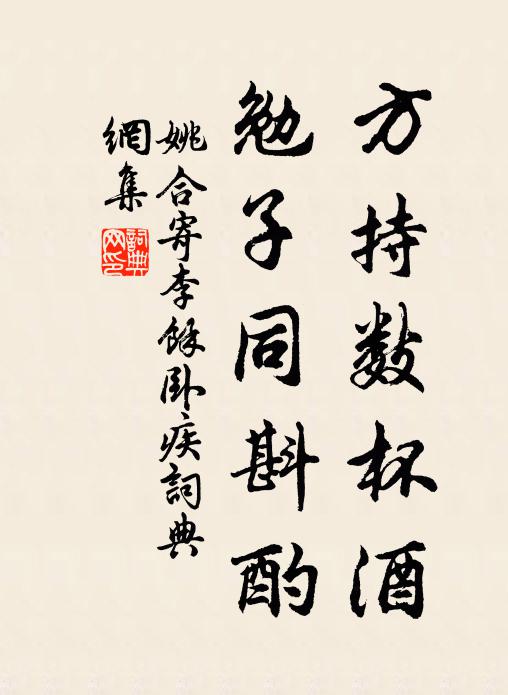 方持数杯酒
勉子同斟酌
姚合寄李馀卧疾詞典
網集
詞典
网印